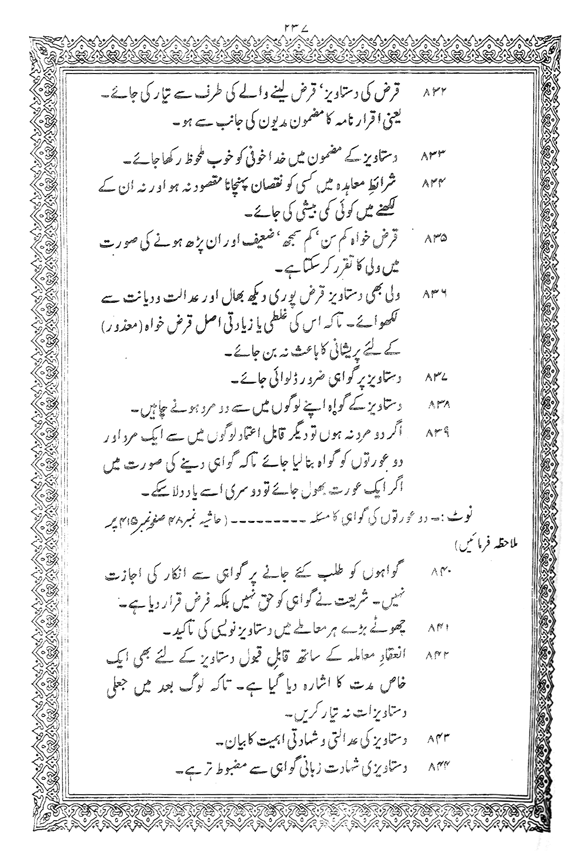 ۲۳۷
۸۳۲ قرض کی دستاویز' قرض لینے والے کی طرف سے تیار کی جائے۔
یعنی اقرار نامہ کا مضمون مدیون کی جانب سے ہو۔
۸۳۳ دستاویز کے مضمون میں خدا خوفی کو خوب ملحوظ رکھا جائے۔
۸۳۴ شرائطِ معاہدہ میں کسی کو نقصان پہنچانا مقصود نہ ہو اور نہ ان کے
لکھنے میں کوئی کمی بیشی کی جائے۔
۸۳۵ قرض خواہ کم سن' کم سمجھ' ضعیف اور ان پڑھ ہونے کی صورت
میں ولی کا تقرر کر سکتا ہے۔
۸۳۶ ولی بھی دستاویز قرض پوری دیکھ بھال اور عدالت و دیانت سے
لکھوائے۔ تاکہ اس کی غلطی یا زیادتی اصل قرض خواہ (معذور)
کے لئے پریشانی کا باعث نہ بن جائے۔
۸۳۷ دستاویز پر گواہی ضرور ڈلوائی جائے۔
۸۳۸ دستاویز کے گواہ اپنے لوگوں میں سے دو مرد ہونے چاہیں۔
۸۳۹ اگر دو مرد نہ ہوں تو دیگر قابل اعتماد لوگوں میں سے ایک مرد اور
دو عورتوں کو گواہ بنا لیا جائے تاکہ گواہی دینے کی صورت میں
اگر ایک عورت بھول جائے تو دوسری اسے یاد دلا سکے۔
نوٹ :۔ دو عورتوں کی گواہی کا مسئلہ ۔۔۔۔۔۔۔۔۔ (حاشیہ نمبر ۴۸ صفحہ نمبر ۴۱۵ پر
ملاحظہ فرمائیں)
۸۴۰ گواہوں کو طلب کئے جانے پر گواہی سے انکار کی اجازت
نہیں۔ شریعت نے گواہی کو حق نہیں بلکہ فرض قرار دیا ہے۔
۸۴۱ چھوٹے بڑے ہر معاملے میں دستاویز نویسی کی تاکید۔
۸۴۲ انعقادِ معاملہ کے ساتھ قابلِ قبول دستاویز کے لئے بھی ایک
خاص مدت کا اشارہ دیا گیا ہے۔ تاکہ لوگ بعد میں جعلی
دستاویزات نہ تیار کریں۔
۸۴۳ دستاویز کی عدالتی و شہادتی اہمیت کا بیان۔
۸۴۴ دستاویزی شہادت زبانی گواہی سے مضبوط تر ہے۔